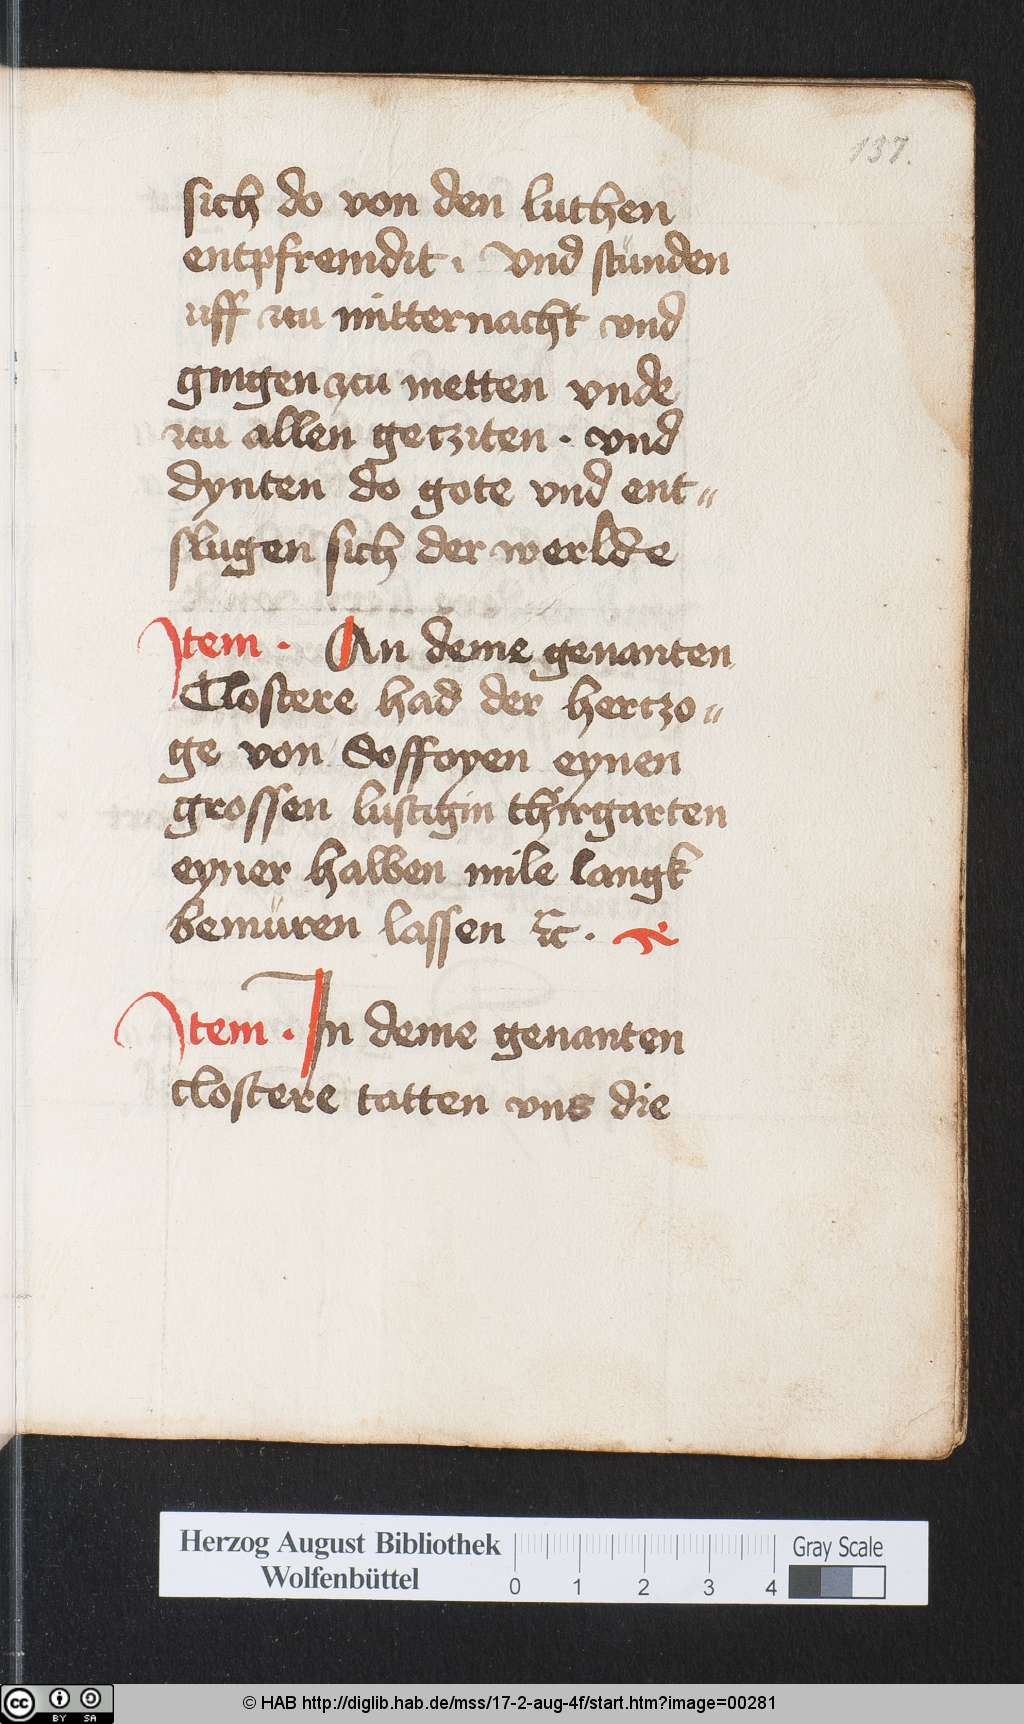 137.
sich do von den luthen
entpfremdit · vnd stünden
uff zcu mitternacht vnd
gingen zcu metten vnde
zcu allen getziten · vnd
dynten do gote vnd ent„
slugen sich der werlde
Item · An deme genanten
Clostere had der hertzo„
ge von Soffoyen eynen
grossen lustigin thirgarten
eyner halben mile langk
bemüren lassen ꝛc ·
Item · In deme genanten
clostere tatten vns die
Herzog August Bibliothek
Wolfenbüttel
0 1 2 3 4
Gray Scale
cc BY SA
© HAB http://diglib.hab.de/mss/17-2-aug-4f/start.htm?image=00281